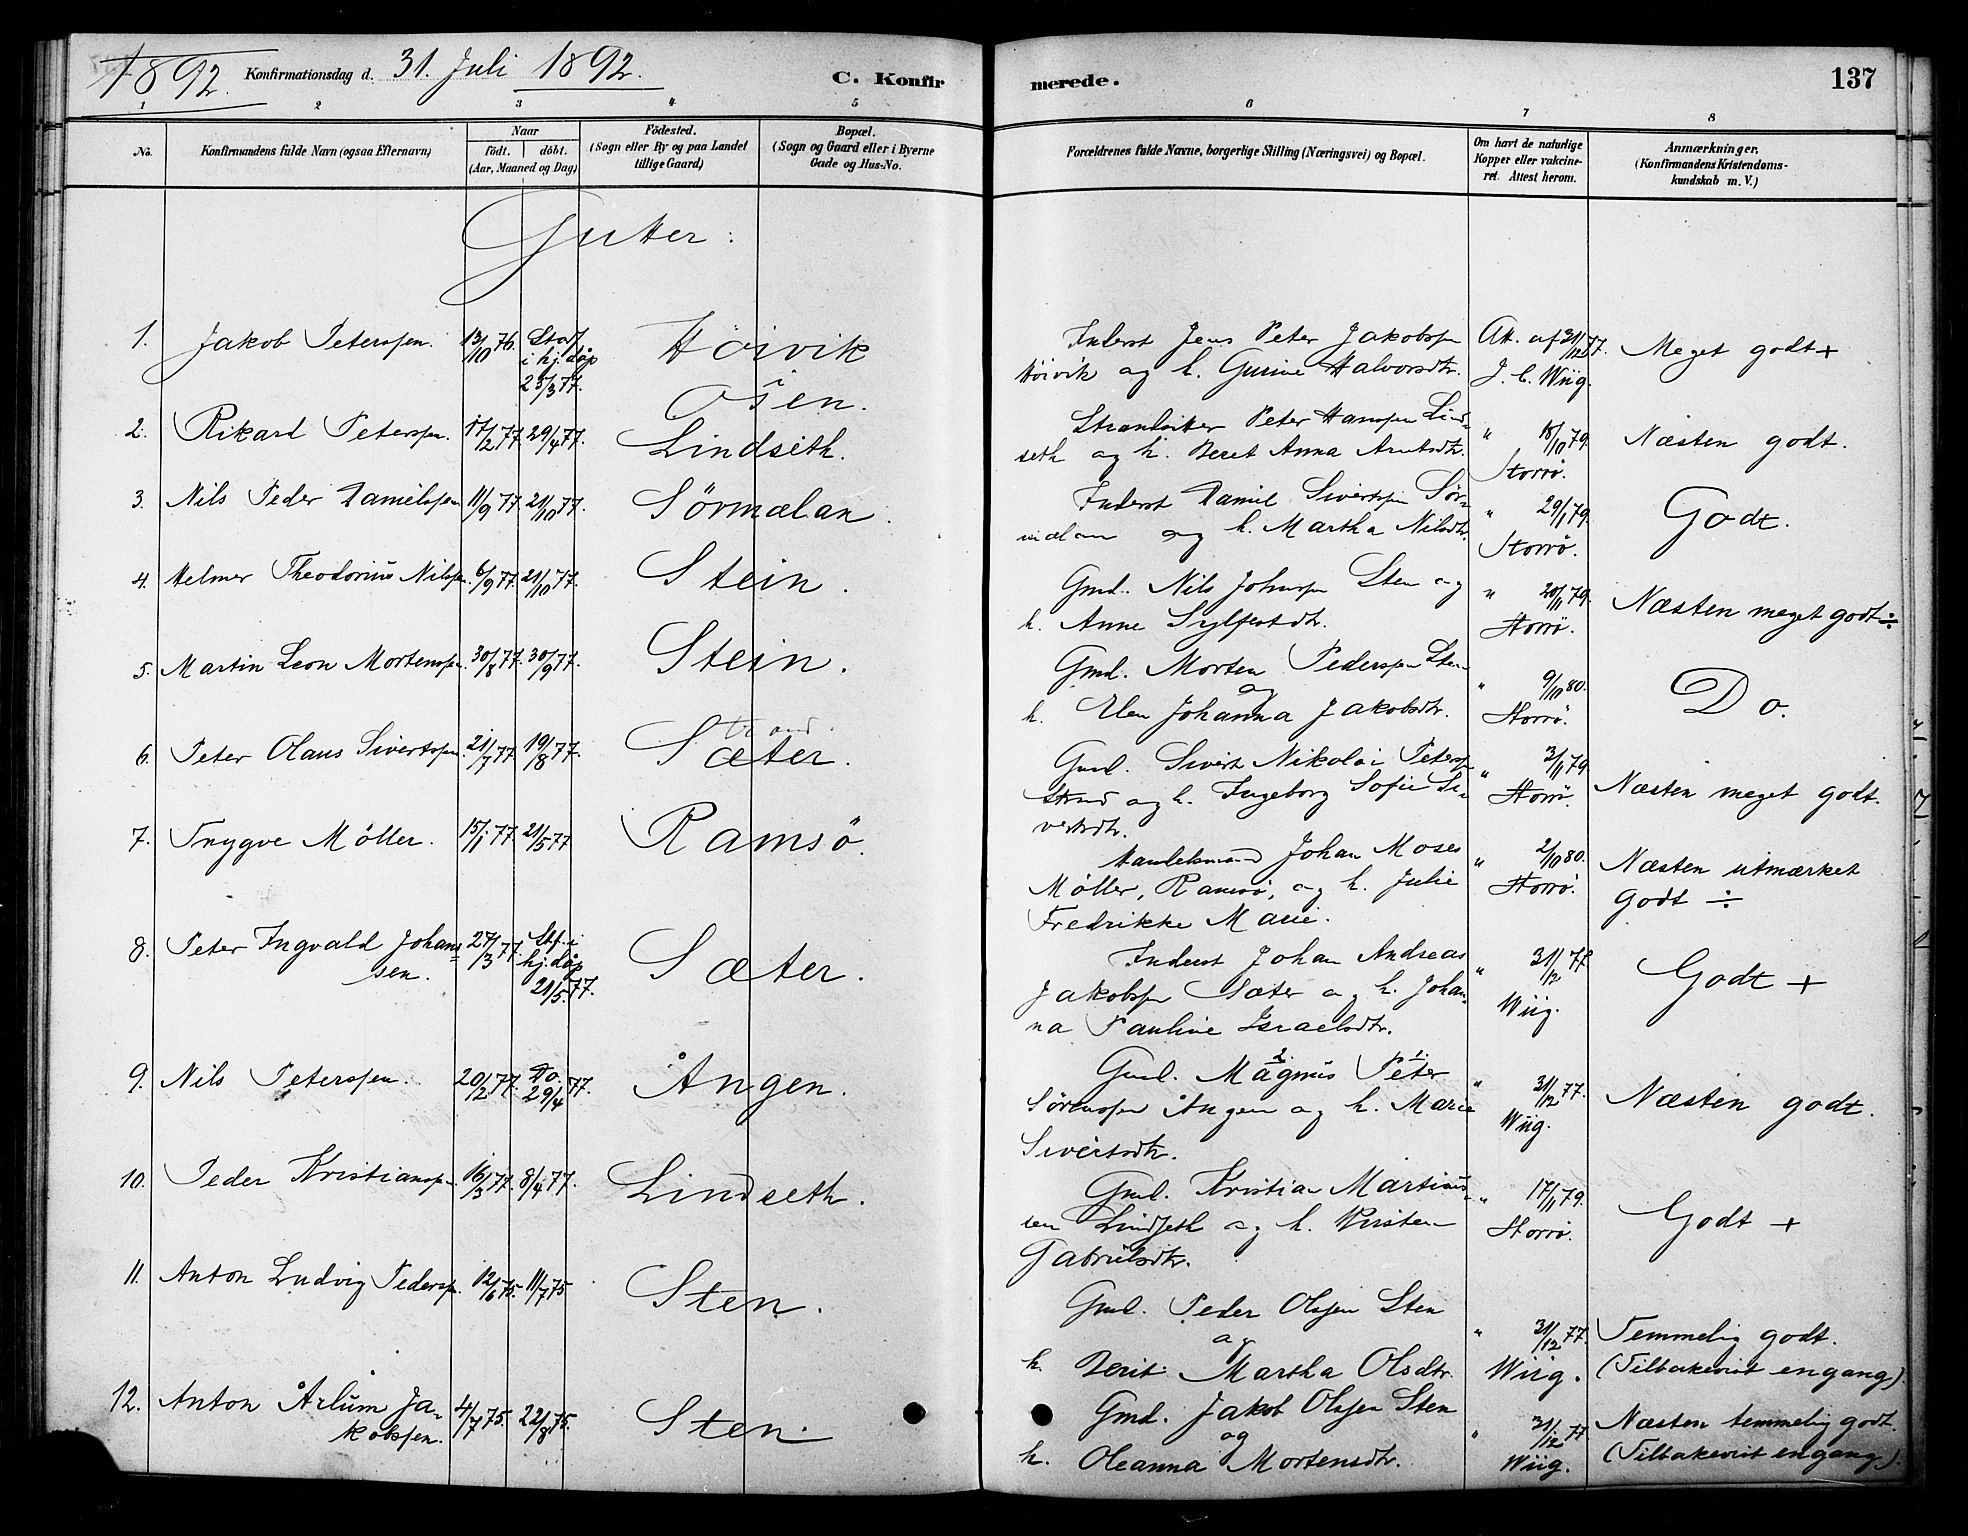 1892. Konfirmationsdag d. 31. Juli 1892. C. Konfir merede. 137
1 2 3 4 5 6 7 8
No. Konfirmandens fulde Navn (ogsaa Efternavn) Naar Födt. döbt. (Aar, Maaned og Dag) Födested. (Sogn eller By og paa Landet tillige Gaard) Bopæl. (Sogn og Gaard eller i Byerne Gade og Hus-No. Forældrenes fulde Navne, borgerlige Stilling (Næringsvei) og Bopæl. Om havt de naturlige Kopper eller vakcineret. Attest herom. Anmærkninger. (Konfirmandens Kristendomskundskab m. V.)
Gutter:
1. Jakob Peterssen. 13/10 76. Stadf. i hj.døp 25/3 77. Höivik i Osen. Inderst Jens Peter Jakobssen
Höivik og h. Gurine Halvorsdtr. Att. af 31/12 77. J. C. Wiig. Meget godt +
2. Rikard Peterssen. 17/2 77. 29/4 77. Lindseth. Strandsitter Peter Hanssen Lind-
seth og h. Beret Anna Arntsdtr. " 18/10 79. Storrö. Næsten godt.
3. Nils Peder Danielssen 11/9 77. 21/10 77. Sörmælan. Inderst Daniel Sivertssen Sör-
mælan og h. Martha Nilsdtr. " 29/1 79. Storrö. Godt.
4. Helmer Theodorius Nilssen. 6/9 77. 21/10 77. Stein. Gmd. Nils Johnssen Sten og
h. Anne Sylfestdtr. " 20/11 79. Storrö. Næsten meget godt ÷
5. Martin Leon Mortenssen. 30/8 77. 30/9 77. Stein. Gmd. Morten Pederssen Sten
og
h. Elen Johanna Jakobsdtr. " 9/10 80. Storrö. Do.
6. Peter Olaus Sivertssen. 21/7 77. 19/8 77. Sæter. Gmd. Sivert Nikolai Peterssen
Strand og h. Ingeborg Sofie Si-
vertsdtr. " 3/11 79. Storrö. Næsten meget godt.
7. Trygve Möller. 15/1 77. 21/5 77 Ramsö. Handelsmand Johan Moses
Möller, Ramsö, og h. Julie
Fredrikke Marie. " 2/10 80. Storrö. Næsten utmærket
godt ÷
8. Peter Ingvald Johans=
sen. 27/3 77. Stf. i hj.døp 21/5 77. Sæter. Inderst Johan Andreas
Jakobssen Sæter og h. Johan-
na Pauline Israelsdtr. " 31/12 77 Wiig. Godt +
9. Nils Peterssen. 20/2 77. Do. 29/4 77. Ången. Gmd. 2. Magnus 1. Peter
Sörenssen Ången og h. Marie
Sivertsdtr. " 31/12 77. Wiig. Næsten godt.
10. Peder Kristianssen. 16/3 77. 8/4 77. Lindseth. Gmd. Kristian Martinus-
sen Lindseth og h. Kirsten
Gabrielsdtr. " 17/11 79. Storrö. Godt +
11. Anton Ludvig Pederssen. 12/6 75. 11/7 75 Sten. Gmd. Peder Olssen Sten
og
h. Berit Martha Olsdtr. " 31/12 77. Wiig. Temmelig godt.
(Tilbakevist engang).
12. Anton Årlum Ja-
kobssen. 4/7 75. 22/8 75. Sten. Gmd. Jakob Olssen Sten
og
h. Oleanna Mortensdtr. " 31/12 77 Wiig. Næsten temmelig godt.
(Tilbakevist engang).